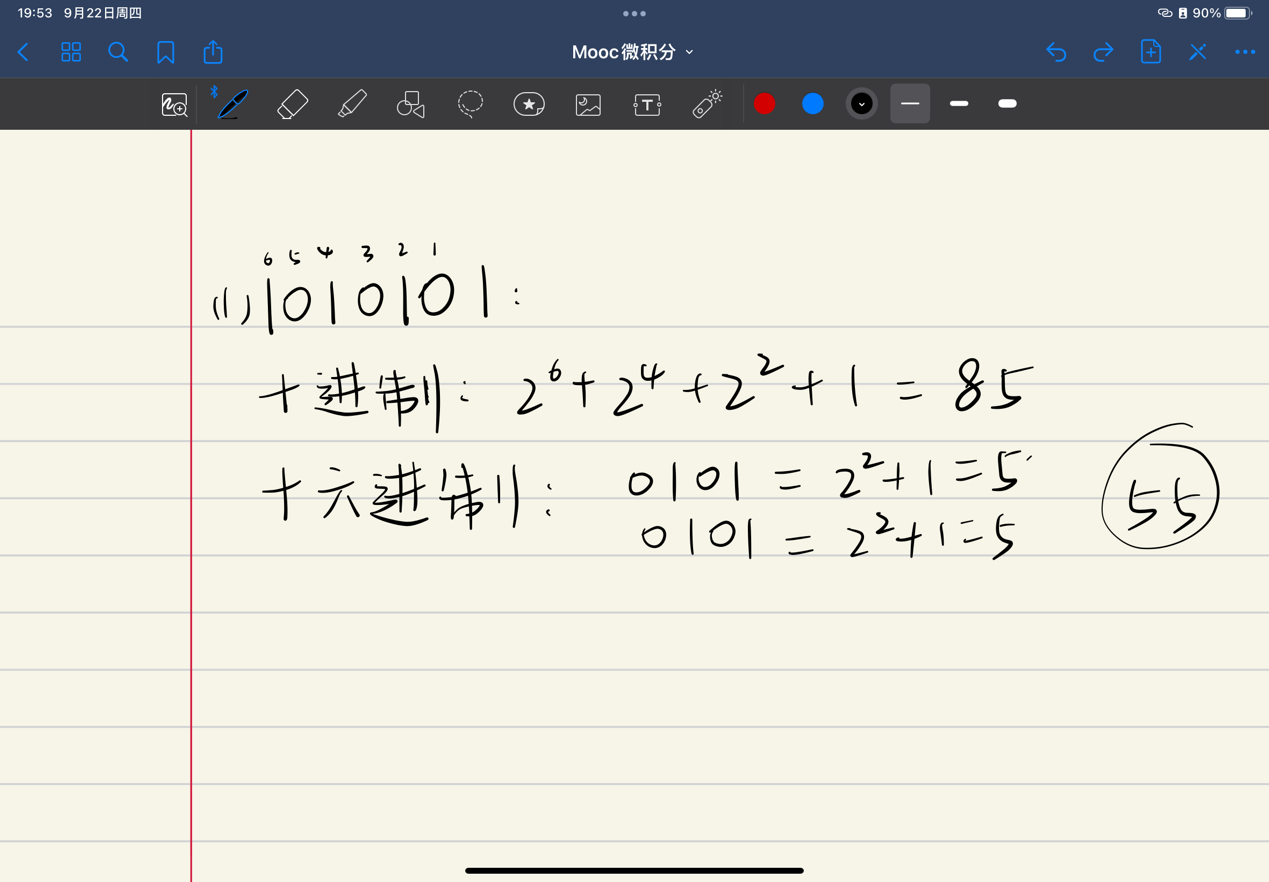 19:53 9月22日周四 90%
Mooc微积分
T
6 5 4 3 2 1
(1) 1010101:
十进制: 2⁶+2⁴+2²+1=85
十六进制: 0101=2²+1=5
0101=2²+1=5
55